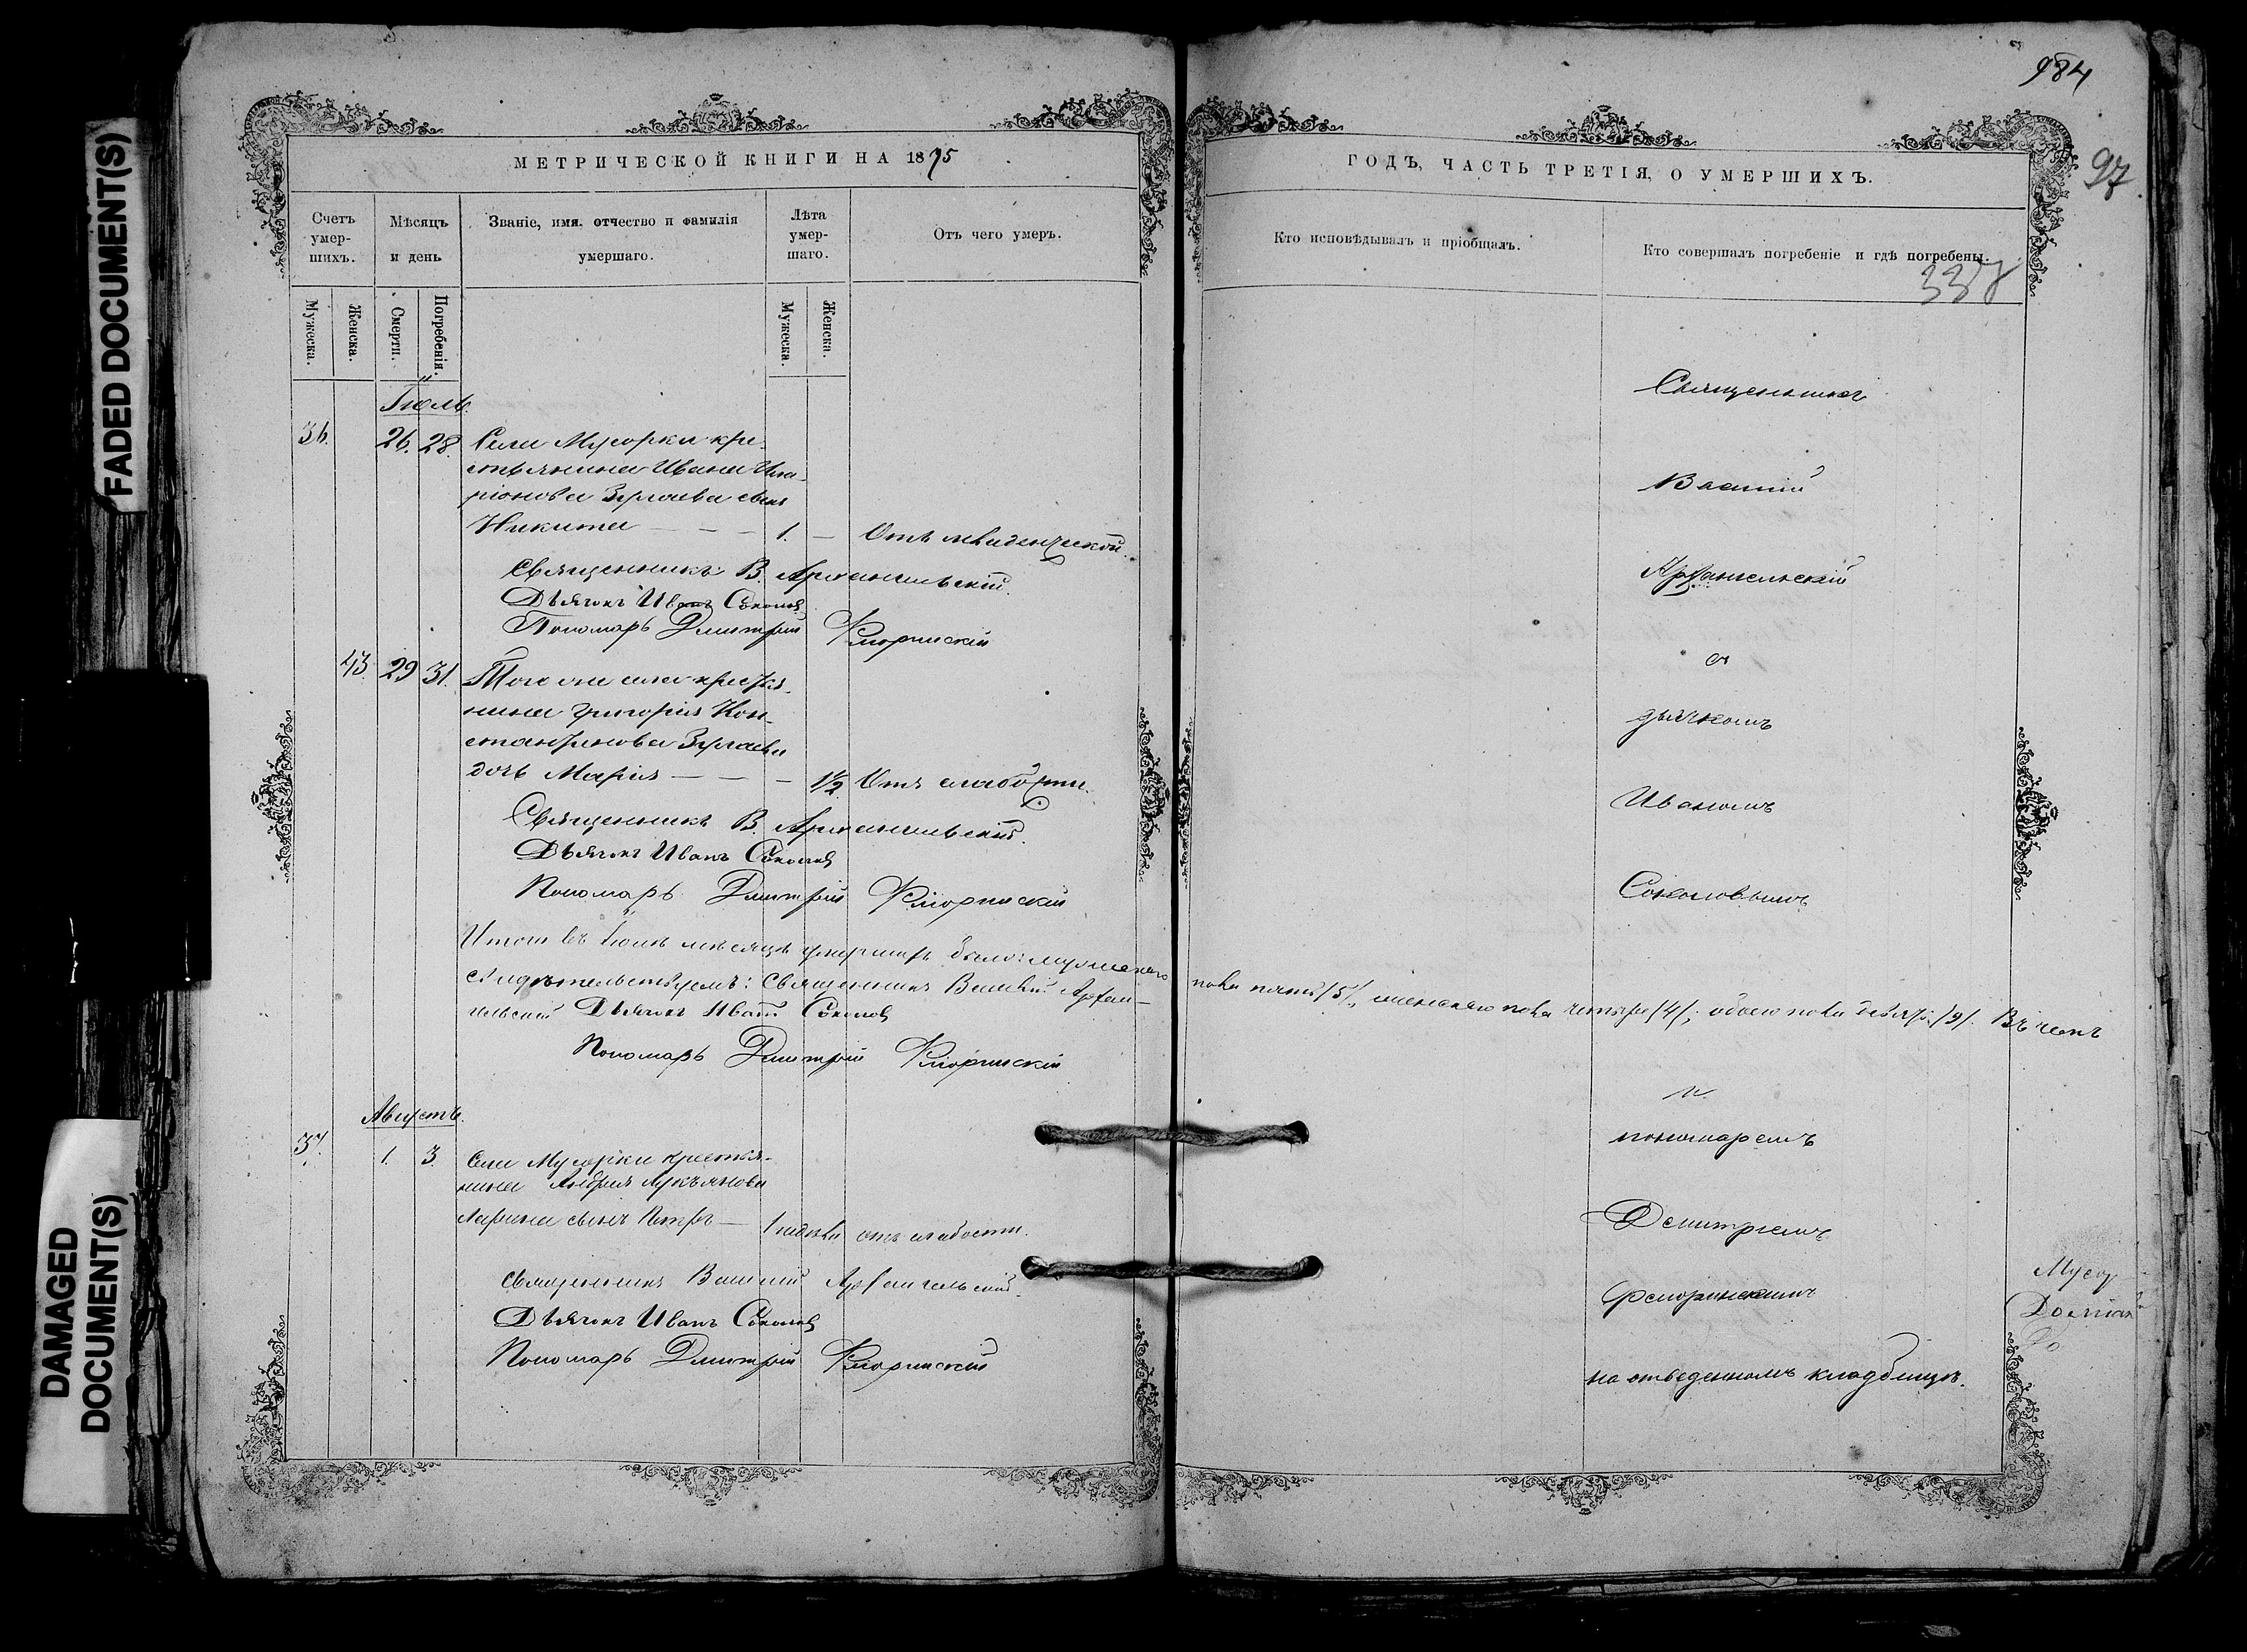 FADED DOCUMENT(S)
DAMAGED
DOCUMENT(S)
МЕТРИЧЕСКОЙ КНИГИ НА 1875
Счетъ умер-шихъ.
Мѣсяцъ и день
Званіе, имя, отчество и фамилія умершаго.
Лѣта умер-шаго.
Отъ чего умеръ.
Мужеска.
Женска.
Смерти.
Погребенія.
Мужеска.
Женска.
Іюль.
36. 26. 28. Села Мусорки кре-
стьянина Ивана Ила-
ріонова Зуглаева сынъ
Никита — — — 1. — Отъ младенческой.
Священникъ В. Архангельскій.
Дьячокъ Иванъ Соколовъ
Пономарь Димитрій Флоринскій
43. 29 31. Того же села крестья-
нина Григорія Кон-
стантинова Зуглаева
дочь Марія — — — 1½ Отъ слабости.
Священникъ В. Архангельскій.
Дьячокъ Иванъ Соколовъ
Пономарь Димитрій Флоринскій
Итого въ Іюлѣ мѣсяцѣ умершихъ было: мужескаго пола пять /5/, женскаго пола четыре /4/; обоего пола девять /9/. Въ чемъ
свидѣтельствуемъ: Священникъ Василій Архан-
гельскій Дьячокъ Иванъ Соколовъ
Пономарь Димитрій Флоринскій
Августъ.
37. 1. 3. Села Мусорки крестья-
нина Андрея Лукъянова
Ларина сынъ Петръ — 1 недѣли отъ слабости.
Священникъ Василій Архангельскій.
Дьячокъ Иванъ Соколовъ
Пономарь Димитрій Флоринскій
984
97
ГОДЪ, ЧАСТЬ ТРЕТІЯ, О УМЕРШИХЪ.
Кто исповѣдывалъ и пріобщалъ.
Кто совершалъ погребеніе и гдѣ погребены.
337
Священникъ
Василій
Архангельскій
съ
дьячкомъ
Иваномъ
Соколовымъ
и
пономаремъ
Димитріемъ
Флоринскимъ
на отведенномъ кладбищѣ.
Мусор